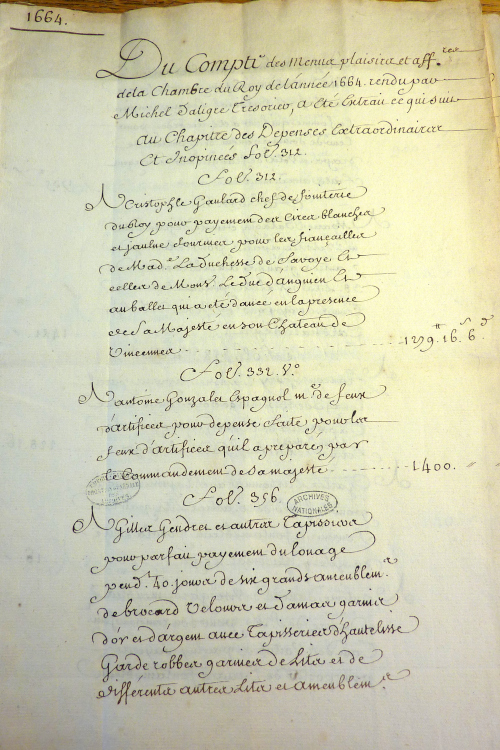 1664.
Du Compte des Menus plaisirs et aff.res
de la Chambre du Roy de l'année 1664. rendu par
Michel Daligre Tresorier, a été Extrait ce qui suit
Au Chapitre des Depenses Extraordinaires
Et Inopinées fol. 312.
Fol. 312.
A Cristophle Gaulard chef de fruiterie
du Roy pour payement des cires blanches
et jaulne fournies pour les fiançailles
de Mad.e La duchesse de Savoye Et
celles de Mons.r Le duc d'anguien Et
au ballet qui a été dancé en la presence
de Sa Majesté en son Chateau de
Vincennes 1279.tt 16.s 6.d
Fol. 332. V.o
A antoine Gonzales Espagnol m.e de feux
d'artifices pour depense faite pour les
feux d'artifices qu'il a preparez par
le Commandement de sa majesté 1400.
Fol. 356.
A Gilles Gendret et autres Tapissiers
pour parfait payement du louage
pend.t 40. jours de six grands ameublem.ts
de brocard Velours et damas garnis
d'or et d'argent avec Tapisseries d'hautelisse
Garderobbes garnies de Lits et de
differents autres Lits et ameublem.ts
ARCHIVES
NATIONALES